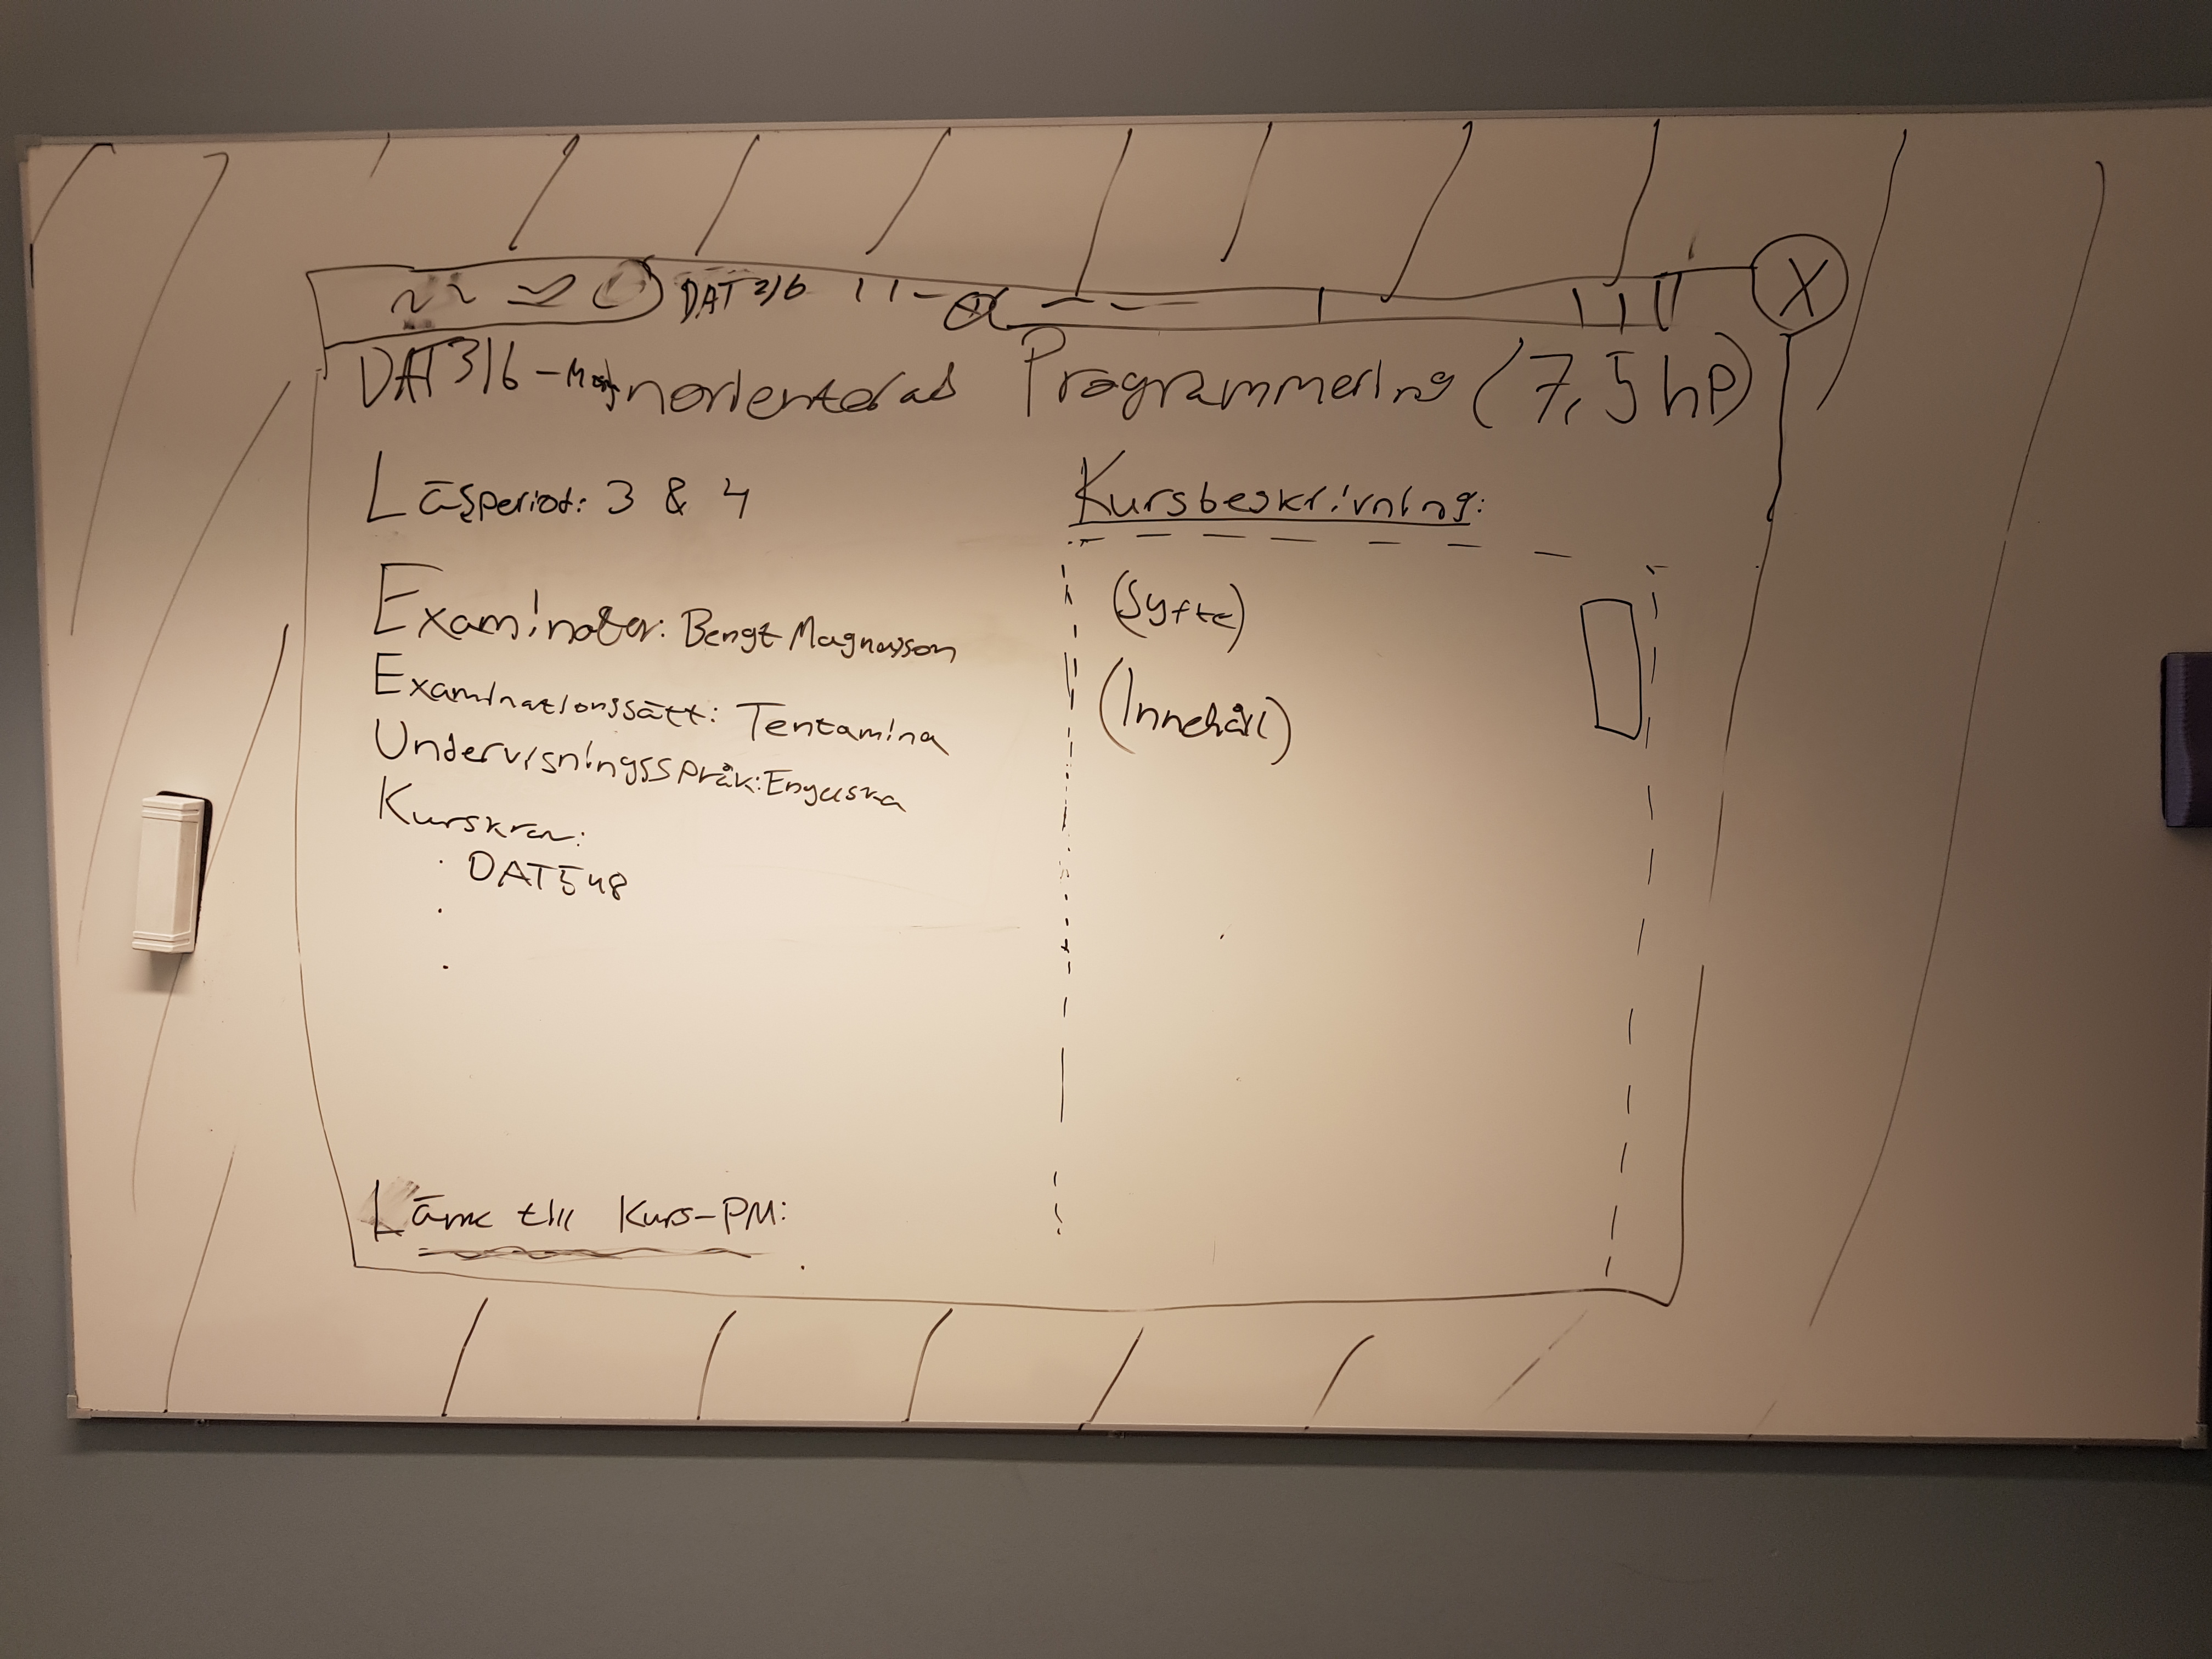 DAT316
DAT316 - norienterad Programmering (7,5 hp)
Läsperiod: 3 & 4
Examinator: Bengt Magnusson
Examinationssätt: Tentamina
Undervisningsspråk: Engelska
Kurskrav:
· DAT548
·
·
Länk till Kurs-PM:
Kursbeskrivning:
(Syfte)
(Innehåll)
X